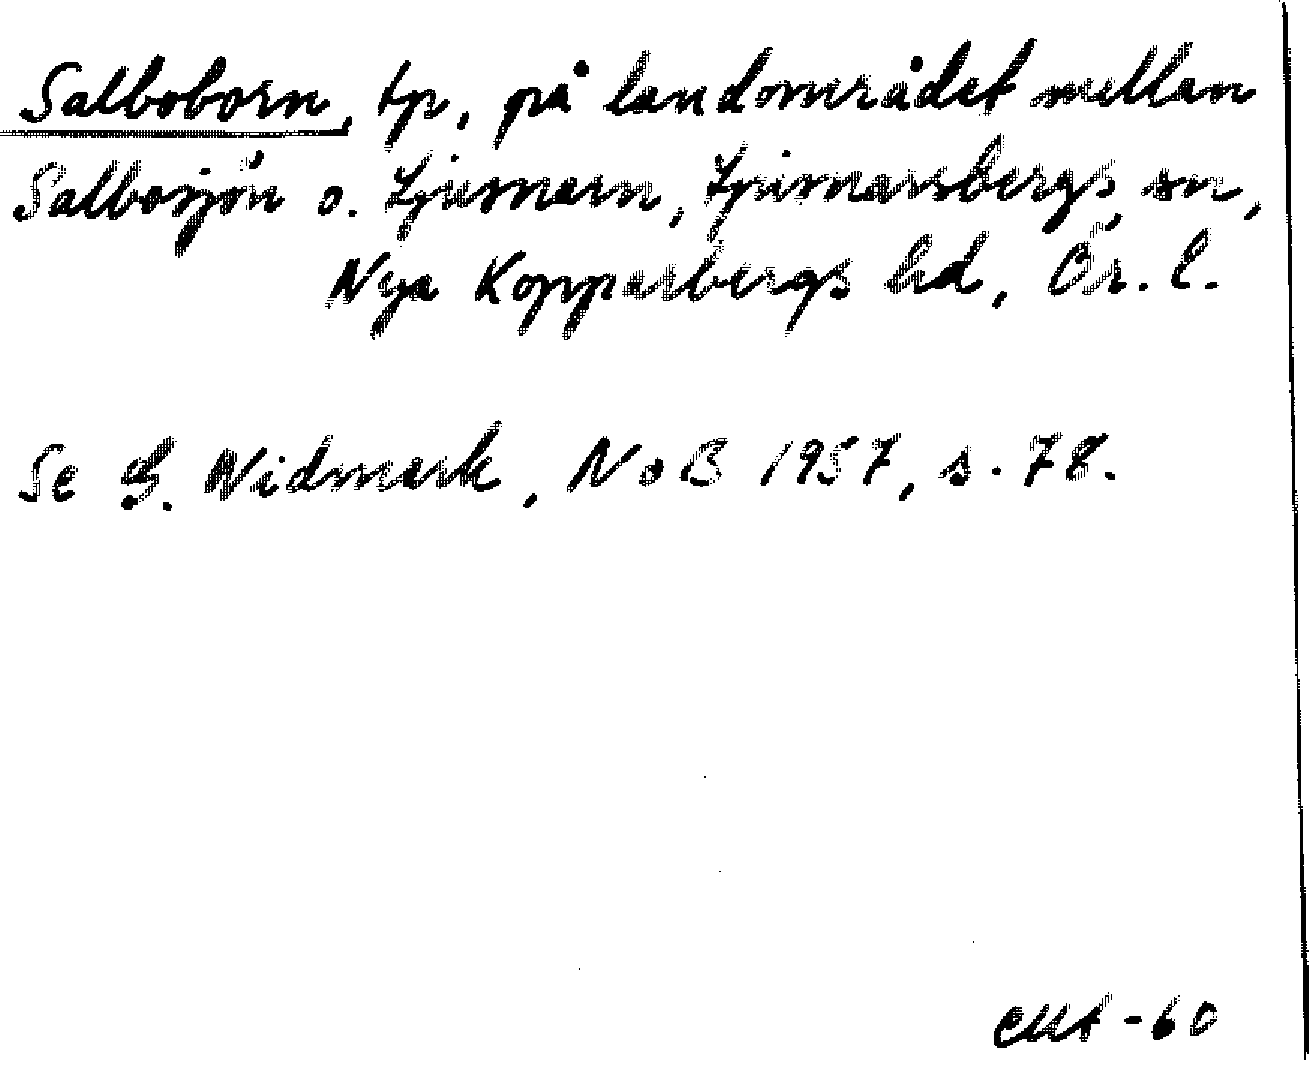 Salboborn, tp, på landområdet mellan
Salbosjön o. Ljusnaren, Ljusnarsbergs sn,
Nya Kopparbergs hd, Ör. l.
Se G. Widmark, NoB 1957, s. 78.
-60